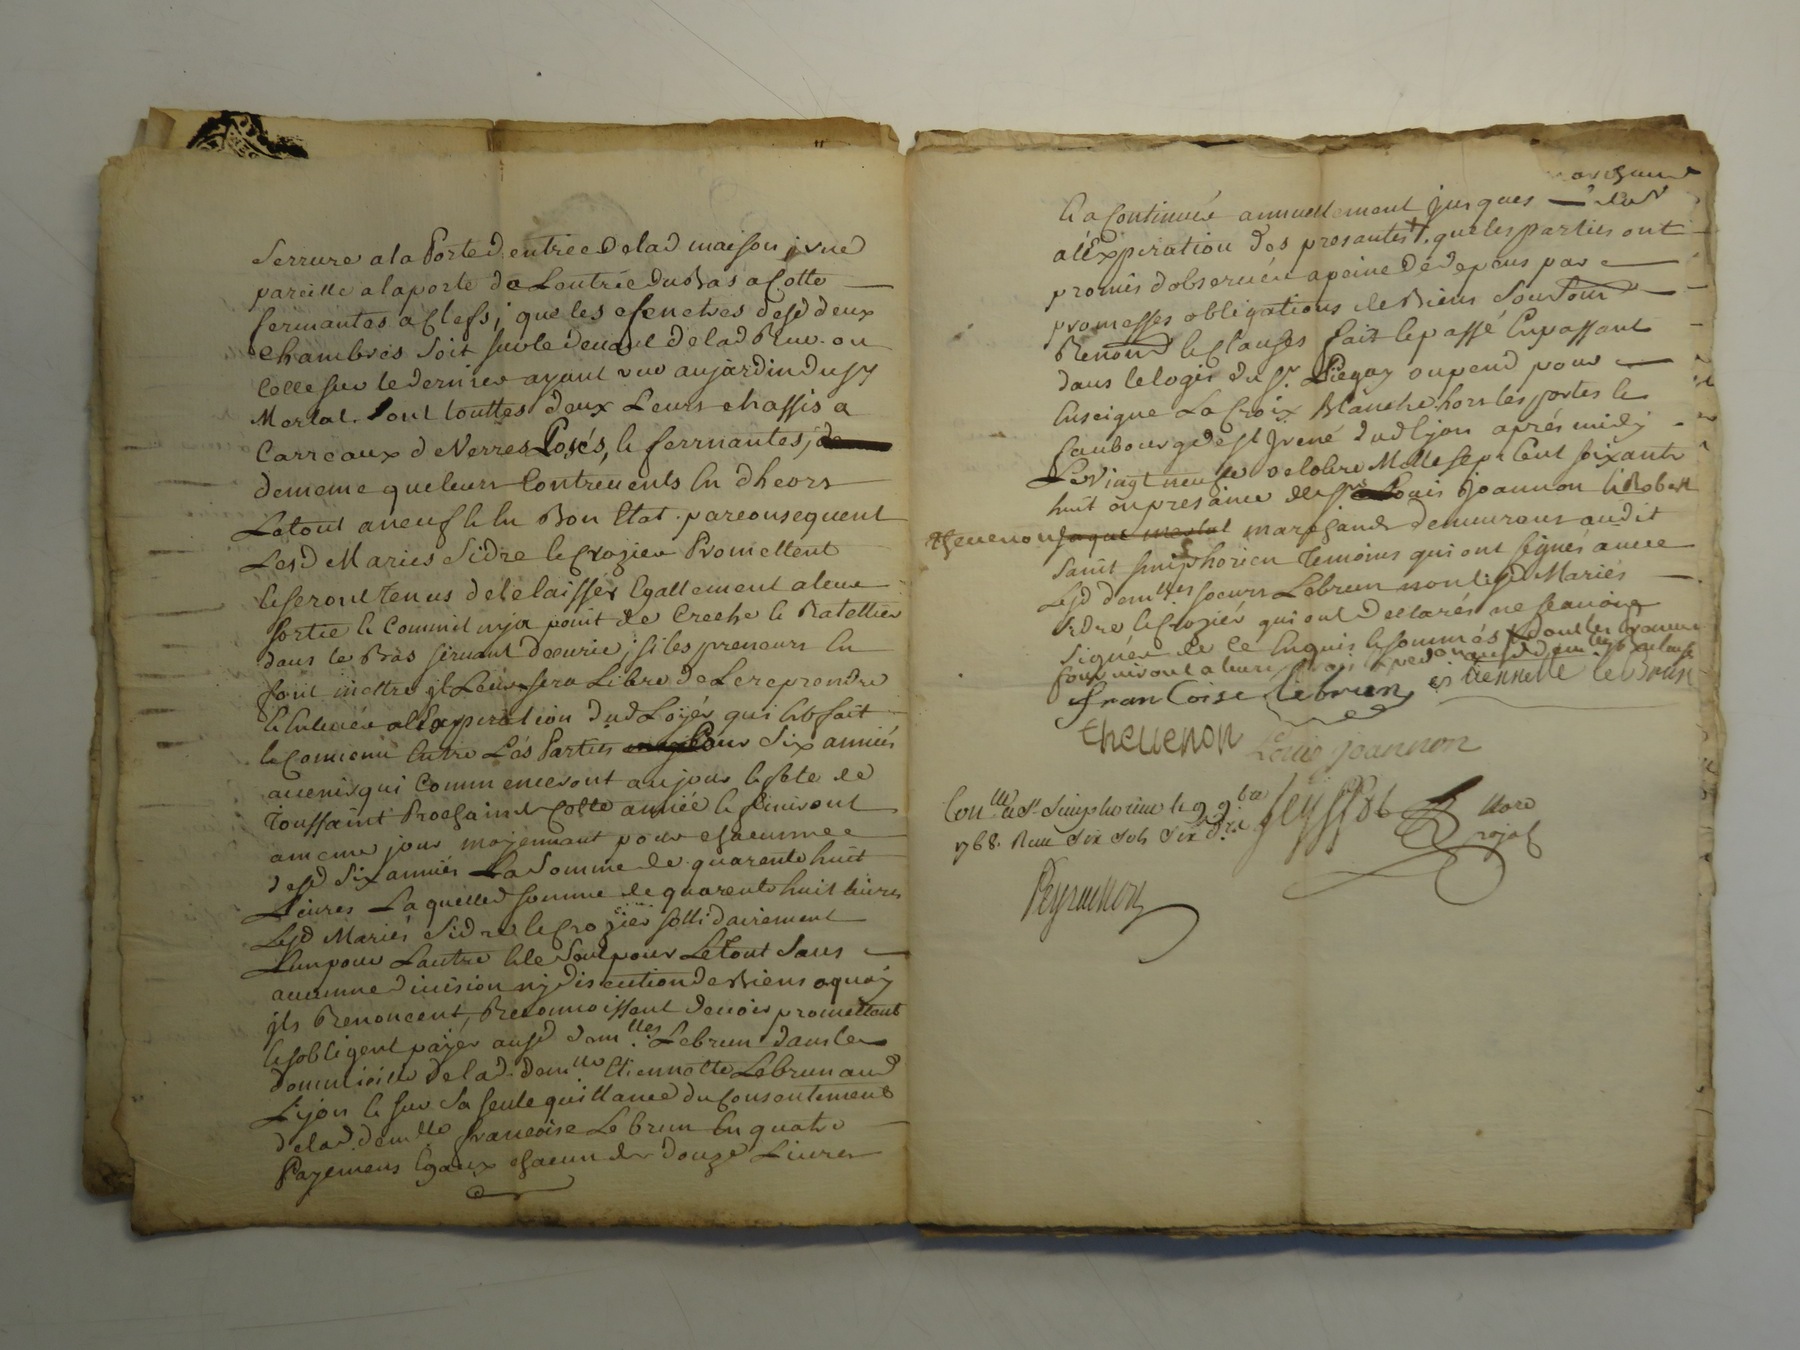 Serrure a la Porte dentrée de lad maison, une
pareille a la porte de Lentrée du Bas a Cotte
fermantes a Clefs; que les fenetres desd deux
Chambres Soit sur le devant de lad Rue. ou
Celle sur le dernier ayant vue au jardin du sr
Merlat. Sont touttes deux Leurs chassis a
Carreaux de Verres Posés, & fermantes,
de meme que leurs Contrevents En dheors
Le tout a neuf & En Bon Etat. par consequent
Lesd Mariés Sidre & Crozier Promettent
& seront Tenus de le laisser Egallement a leur
Sortie & Comme il n'ya point de Creche & Ratellier
dans le Bas servant decurie; si les preneurs En
font mettre jl Leur sera Libre de Le reprendre
& Enlever a l'expiration dud Loyer qui Est fait
& Convenu Entre Les Parties Pour Six années
avenir qui Commenceront au jour & fete de
Toussaint Prochaine Cette année & finiront
a meme jour moyennant pour chacunne
desd Six années La Somme de quarente huit
Livres Laquelled somme de quarente huit livres
Lesd Mariés Sidre & Crozier sollidairement
Lun pour Lautre & le Seul pour Le Tout Sans
aucunne division ny discution de Biens a quoy
jls Renoncent, Reconnoissent devoir promettent
& sobligent payer ausd demlles Lebrun dans le
dommicille de lad. demlle Etiennette Lebrun aud
Lyon & sur Sa seule quittance du Consentement
de lad. demlle francoise Lebrun En quatre
Payemens Egaux chacun de douze Livres
& a Continuer annuellement jusques
a l'Expiration des presantes, que les parties ont
promis dobserver a peine de depens par
promesses obligations de Biens
Renond & Clauses fait & passé En passant
dans le logis du sr. Piegay ou pend pour
Enseigne La Croix Blanche hors les portes &
faubourg de st Irené dud Lyon aprés midy
Le vingt neuf octobre Mille sept Cent soixante
huit en presance de Louis Joannon & Robert
Thevenon marchands demeurans audit
Saint Simphorien Temoins qui ont signés avec
Lesd demlles soeurs Lebrun non lesd Mariés
Sidre & Crozier qui ont declarés ne scavoir
signer de ce Enquis & sommés dont les preneurs
fourniront a leurs frais
francoise lebrun etiennette le Brun
Thevenon Louis joannon
Conlle a St Simphorien le 9 9bre
1768. Recu Six sols Six drs
Peyssel Nore
royal
Peyrachon